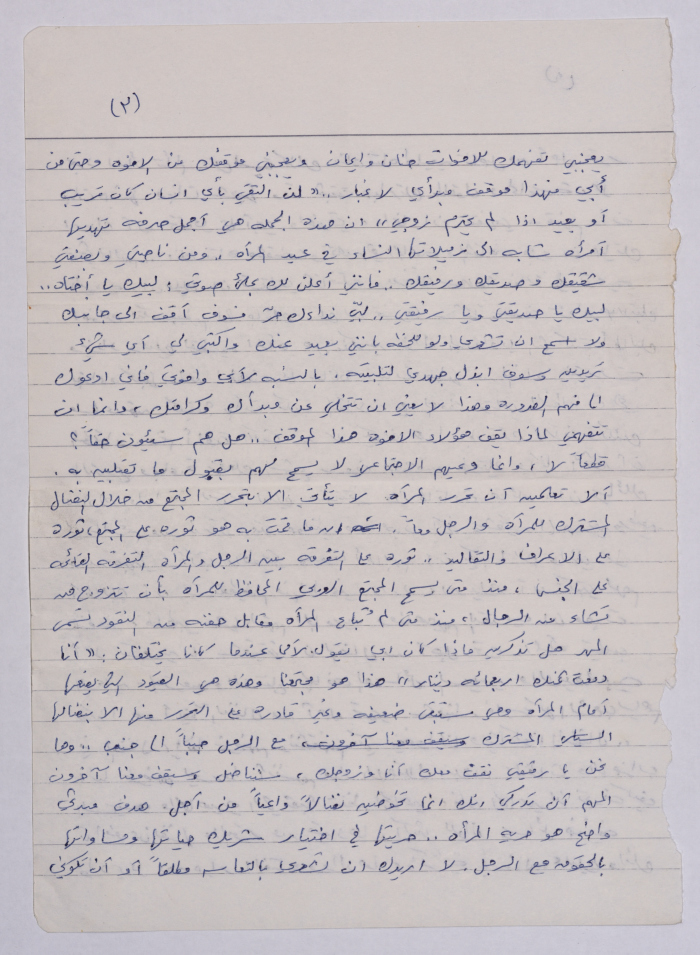 (٢)
يعجبني تفهمك للاخوات حنان وايمان ويعجبني موقفك من الاخوه وحتى من
أبي فهذا موقف مبدأي لا غبار .. « لن التقي بأي انسان كان قريب
أو بعيد اذا لم يحترم زوجي » ان هذه الجمله هي أجمل
أمرأه شابه الى زميلاتها النساء في عيد المرأه ، ومن ناحيتي
شقيقك وصديقك ورفيقك .. فانني أعلن لك بملئ صوتي : لبيك يا أختاه ..
لبيك يا صديقتي ويا رفيقتي .. نداءك فسوف أقف الى جانبك
ولا ان تشعري ولو للحظه بانني بعيد عنك واكتبي لي أي شيء
تريدينه وسوف ابذل جهدي لتلبيته . بالنسبه لأبي واخوتي فاني ادعوك
الى فهم وهذا لا يعني ان تتخلي عن مبدأك وكرامتك ، وانما ان
تتفهمي لماذا يقف هؤلاء الاخوه هذا الموقف .. هل هم سيئون حقاً ؟
قطعاً لا ، وانما وعيهم الاجتماعي لا يسمح لهم بقبول ما تقبلين به .
ألا تعلمين أن تحرر المرأه لا يتأتى الا بتحرر المجتمع من خلال النضال
المشترك للمرأه والرجل معاً . ان ما قمت به هو ثوره على المجتمع ، ثوره
على الاعراف والتقاليد .. ثوره على التفرقه بين الرجل والمرأه التفرقه القائمه
على الجنس ، منذ متى يسمح المجتمع العربي المحافظ للمرأه بأن تتزوج من
تشاء من الرجال ، منذ متى لم تباع المرأه مقابل حفنه من النقود تسمى
المهر هل تذكرين ماذا كان ابي يقول لأمي عندما كانا يختلفان : « أنا
دفعت ثمنك اربعمائه دينار » هذا هو مجتمعنا وهذه هي القيود التي يضعها
أمام المرأه وهي ستبقى ضعيفه وغير قادره على التحرر منها الا بنضالها
المشترك مع الرجل جنباً الى جنب .. وها
نحن يا رفيقتي نقف معك أنا وزوجك ، سنناضل وسيقف معنا آخرون
المهم أن تدركي انك انما تخوضين نضالاً واعياً من أجل هدف مبدئي
واضح هو حرية المرأه .. حريتها في اختيار شريك حياتها ومساواتها
بالحقوق مع الرجل . لا اريدك ان تشعري بالتعاسه مطلقاً أو أن تكوني